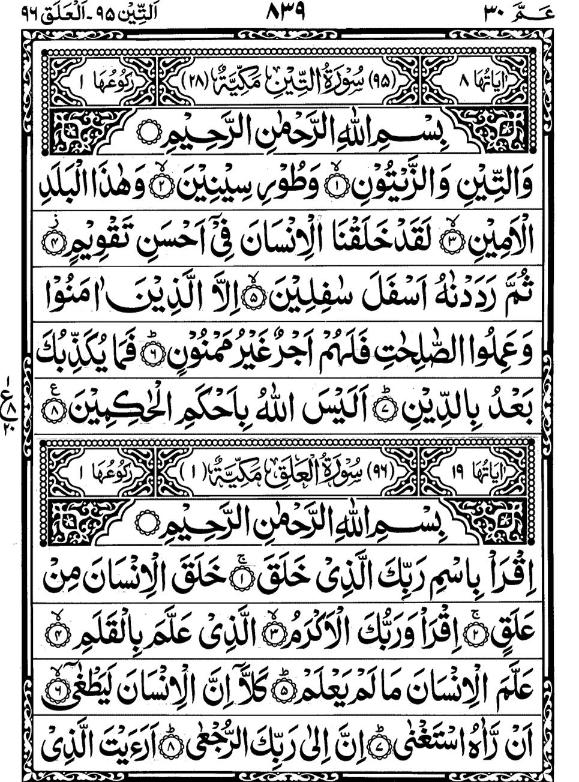 عـمّ ٣٠ ٨٣٩ التّين ٩٥ - العلق ٩٦
اٰيَاتُهَا ٨ (٩٥) سُوْرَةُ التِّيْنِ مَكِّيَّةٌ (٢٨) رُكُوْعُهَا ١
بِسْمِ اللّٰهِ الرَّحْمٰنِ الرَّحِيْمِ
وَالتِّيْنِ وَالزَّيْتُوْنِ ۙ‏﴿١﴾ وَطُوْرِ سِيْنِيْنَ ۙ‏﴿٢﴾ وَهٰذَا الْبَلَدِ
الْاَمِيْنِ ۙ‏﴿٣﴾ لَقَدْ خَلَقْنَا الْاِنْسَانَ فِيْٓ اَحْسَنِ تَقْوِيْمٍ ز ﴿٤﴾
ثُمَّ رَدَدْنٰهُ اَسْفَلَ سٰفِلِيْنَ ۙ‏﴿٥﴾ اِلَّا الَّذِيْنَ اٰمَنُوْا
وَعَمِلُوا الصّٰلِحٰتِ فَلَهُمْ اَجْرٌ غَيْرُ مَمْنُوْنٍ ؕ‏﴿٦﴾ فَمَا يُكَذِّبُكَ
بَعْدُ بِالدِّيْنِ ؕ‏﴿٧﴾ اَلَيْسَ اللّٰهُ بِاَحْكَمِ الْحٰكِمِيْنَ ع ﴿٨﴾
١
ع
٨
٢٠
اٰيَاتُهَا ١٩ (٩٦) سُوْرَةُ الْعَلَقِ مَكِّيَّةٌ (١) رُكُوْعُهَا ١
بِسْمِ اللّٰهِ الرَّحْمٰنِ الرَّحِيْمِ
اِقْرَاْ بِاسْمِ رَبِّكَ الَّذِيْ خَلَقَ ۚ‏﴿١﴾ خَلَقَ الْاِنْسَانَ مِنْ
عَلَقٍ ۚ‏﴿٢﴾ اِقْرَاْ وَرَبُّكَ الْاَكْرَمُ ۙ‏﴿٣﴾ الَّذِيْ عَلَّمَ بِالْقَلَمِ ۙ‏﴿٤﴾
عَلَّمَ الْاِنْسَانَ مَا لَمْ يَعْلَمْ ؕ‏﴿٥﴾ كَلَّآ اِنَّ الْاِنْسَانَ لَيَطْغٰٓى ۙ‏﴿٦﴾
اَنْ رَّاٰهُ اسْتَغْنٰى ؕ‏﴿٧﴾ اِنَّ اِلٰى رَبِّكَ الرُّجْعٰى ؕ‏﴿٨﴾ اَرَءَيْتَ الَّذِيْ